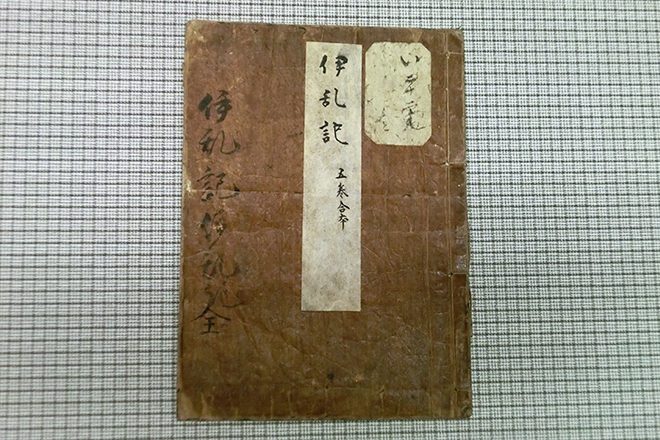 い
伊乱記
五巻合本
伊乱記伊乱記全